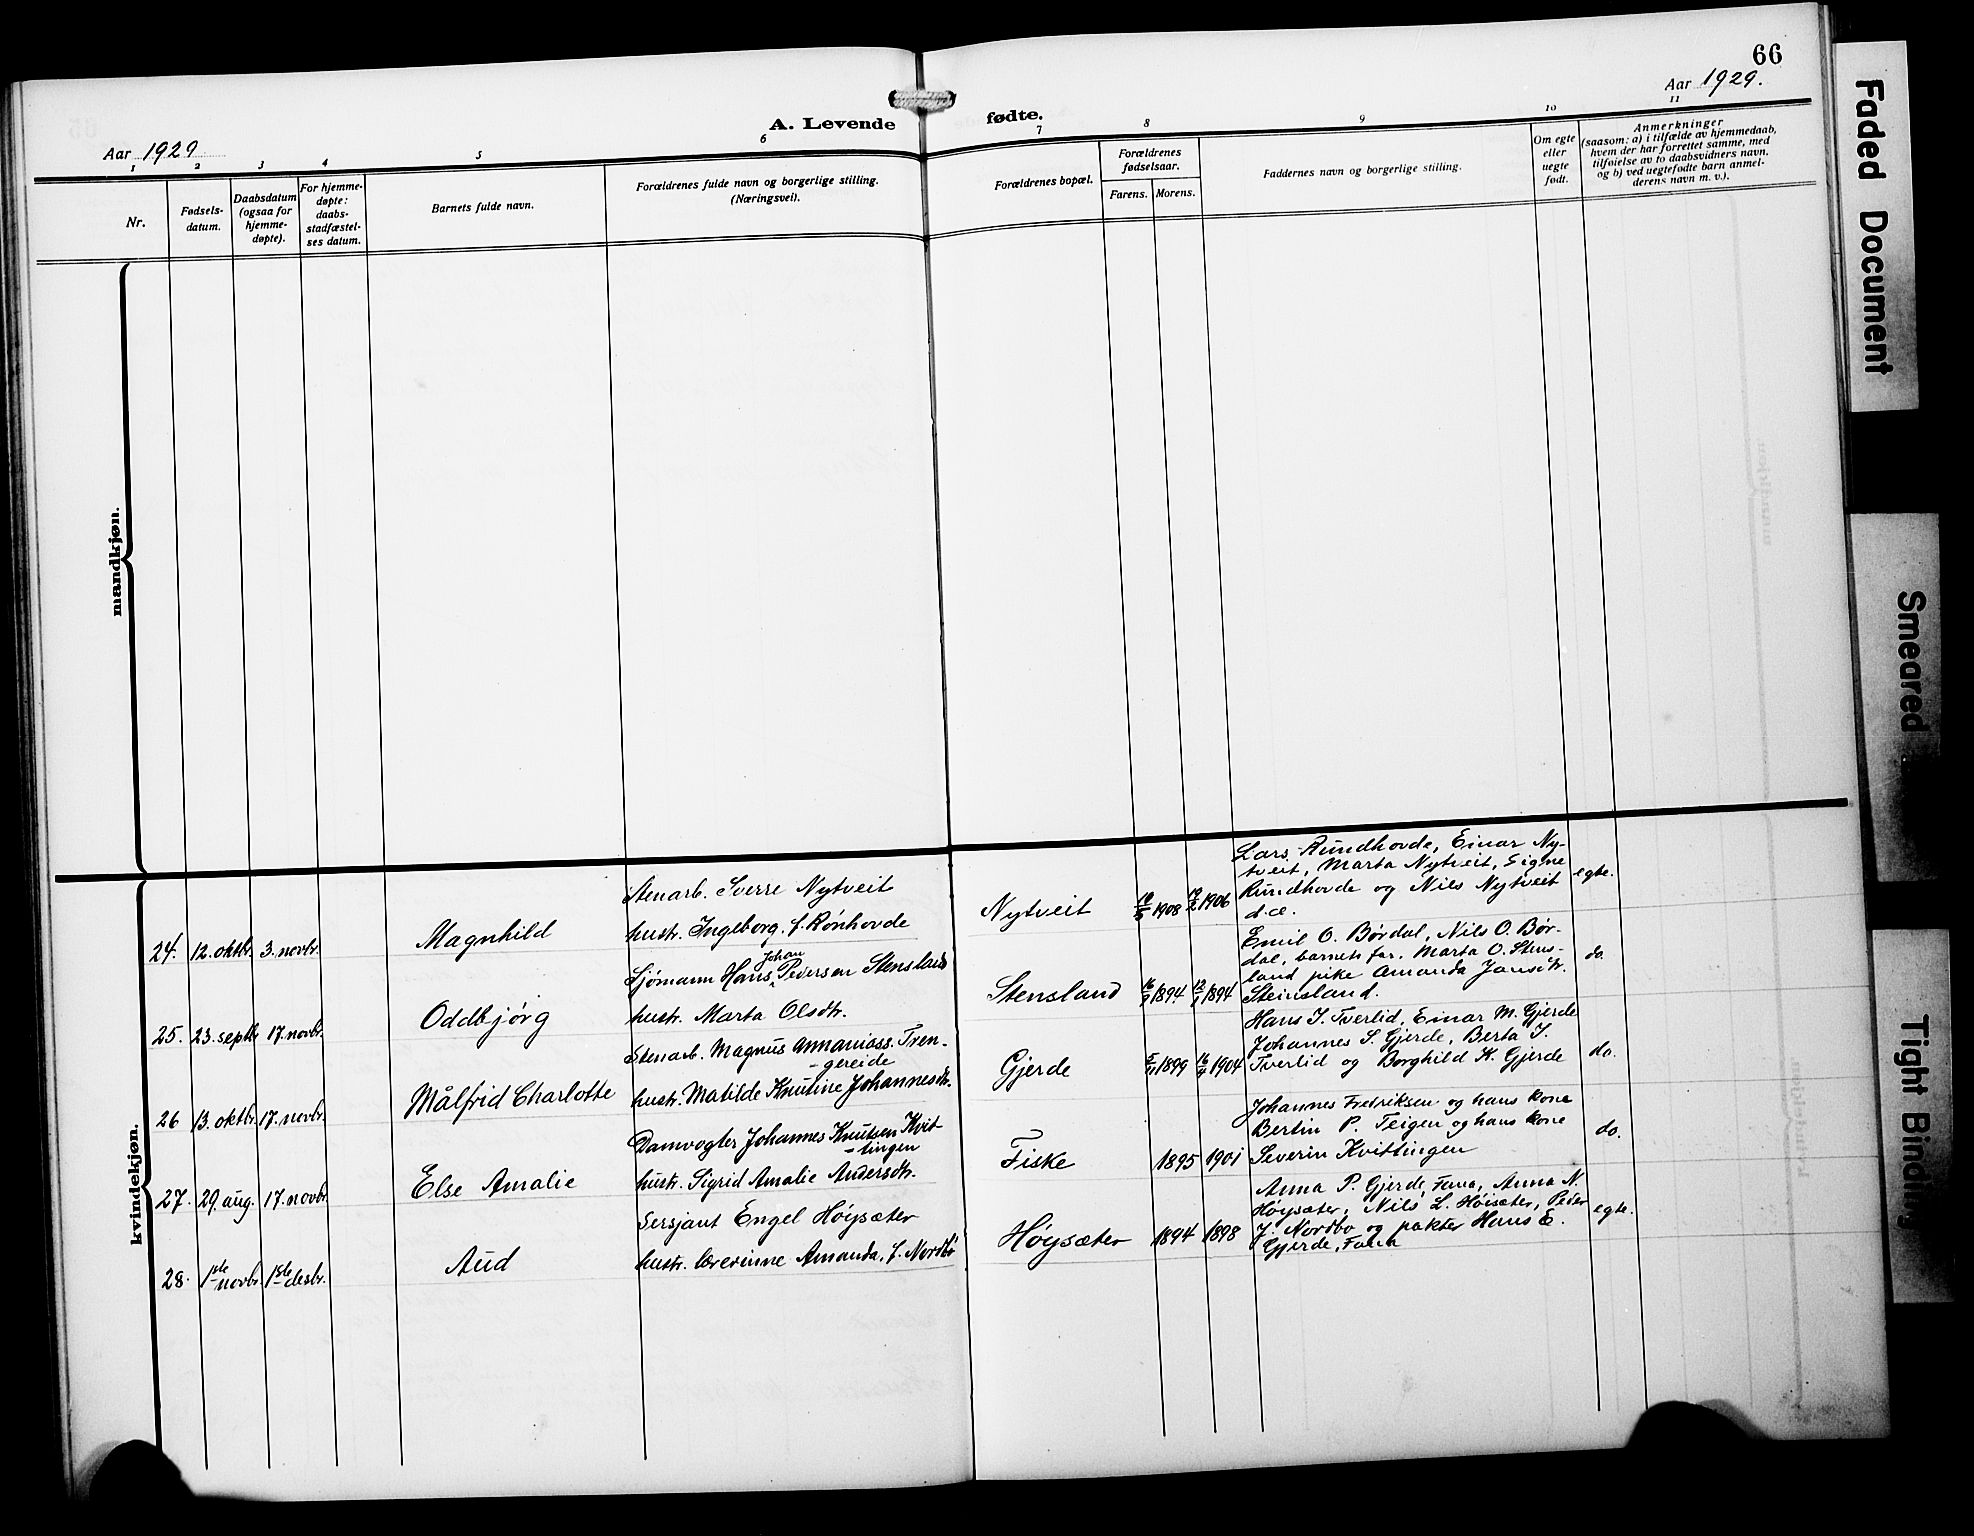 66
Aar 1929.
A. Levende fødte.
Aar 1929
1 2 3 4 5 6 7 8 9 10 11
Nr.
Fødsels-
datum.
Daabsdatum
(ogsaa for
hjemme-
døpte).
For hjemme-
døpte:
daabs-
stadfæstel-
ses datum.
Barnets fulde navn.
Forældrenes fulde navn og borgerlige stilling.
(Næringsvei).
Forældrenes bopæl.
Forældrenes
fødselsaar.
Farens. Morens.
Faddernes navn og borgerlige stilling.
Om egte
eller
uegte
født.
Anmerkninger
(saasom: a) i tilfælde av hjemmedaab,
hvem der har forrettet samme, med
tilføielse av to daabsvidners navn.
og b) ved uegtefødte barn anmel-
derens navn m. v.).
mandkjøn.
kvindekjøn.
24. 12. oktbr. 3. novbr. Magnhild
Stenarb. Sverre Nytveit
hustr. Ingeborg, f. Rónhovde
Nytveit 1908 1906
Lars Rundhovde, Einar Ny-
tveit, Marta Nytveit, Signe
Rundhovde og Nils Nytveit
d.æ.
egte.
25. 23. septbr 17. novbr. Oddbjórg
Sjómann Hans Johan Pedersen Stensland
hustr. Marta Olsdtr.
Stensland 1894 1894
Emil O. Bórdal, Nils O. Bór-
dal, barnets far, Marta O. Stens-
land pike Amanda Jansdtr.
Steinsland.
do.
26 13. oktbr. 17. novbr. Målfrid Charlotte
Stenarb. Magnus Annaniass. Tren-
-gereide
hustr. Matilde Knutine Johannesdtr.
Gjerde 1899 1904
Hans J. Tverlid, Einar M. Gjerde
Johannes S. Gjerde, Berta J.
Tverlid og Borghild K. Gjerde
do.
27. 29. aug. 17. novbr. Else Amalie
Damvogter Johannes Knutsen Kvit-
-tingen
hustr. Sigrid Amalie Andersdtr.
Fiske 1895 1901
Johannes Fredriksen og hans kone
Bertin P. Teigen og hans kone
Severin Kvittingen
do.
28. 1ste novbr. 1ste desbr. Aud
Sersjant Engel Hóysæter
hustr. lærerinne Amanda, f. Nordbó
Hóysæter 1894 1898
Anna P. Gjerde, Fana, Anna N.
Hóysæter, Nils L. Hóisæter, Peder
J. Nordbó og pakter Hans E.
Gjerde, Fana
egte.
Faded Document
Smeared
Tight Binding